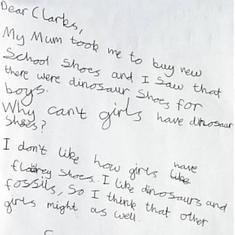 Dear Clarks,
My Mum took me to buy new
School Shoes and I Saw that
there were dinosaur Shoes for
boys.
Why can't girls have dinosaur
Shoes?
I don't like how girls have
flowery Shoes. I like dinosaurs and
fossils, So I think that other
girls might as well.